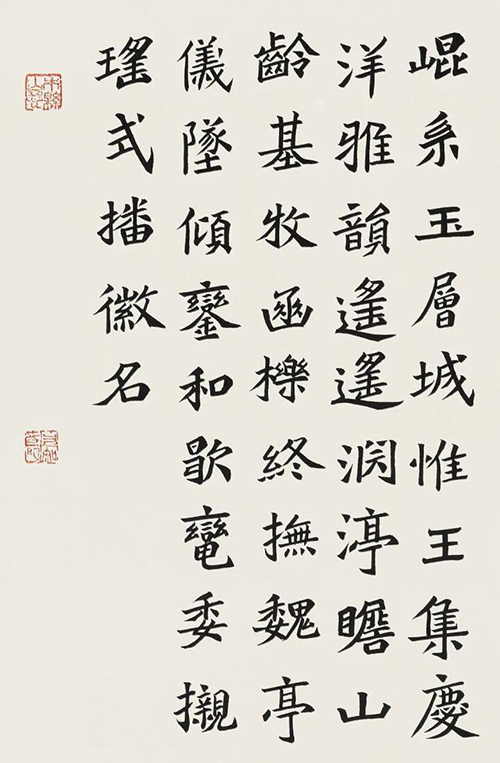 崐系玉層城惟王集慶
洋雅韻遙遙渕渟瞻山
齡基牧函櫟終撫魏亭
儀墜傾鑾和歇委
瑤式播徽名